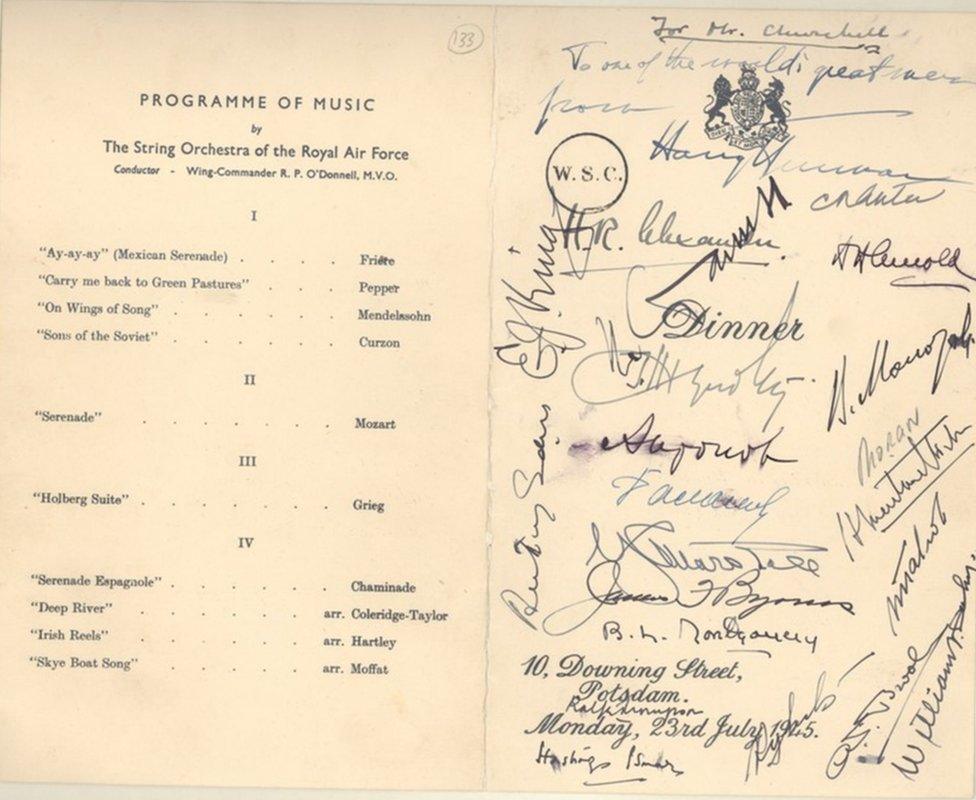 133
PROGRAMME OF MUSIC
by
The String Orchestra of the Royal Air Force
Conductor - Wing-Commander R. P. O'Donnell, M.V.O.
I
"Ay-ay-ay" (Mexican Serenade) . . . . Friere
"Carry me back to Green Pastures" . . . . Pepper
"On Wings of Song" . . . . . . Mendelssohn
"Sons of the Soviet" . . . . . . Curzon
II
"Serenade" . . . . . . . Mozart
III
"Holberg Suite" . . . . . . . Grieg
IV
"Serenade Espagnole" . . . . . . Chaminade
"Deep River" . . . . . . arr. Coleridge-Taylor
"Irish Reels" . . . . . . arr. Hartley
"Skye Boat Song" . . . . . . arr. Moffat
For Mr. Churchill
To one of the world's great men
from
Harry Truman
W.S.C.
C R Attlee
H.R. Alexander
HHArnold
E.J. King
Dinner
Moran
G C Marshall
James F Byrnes
B. L. Montgomery
10, Downing Street,
Potsdam.
Monday, 23rd July, 1945.
Hastings Ismay
William D. Leahy.